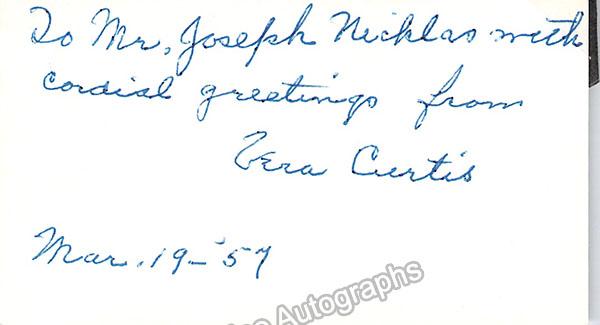 To Mr. Joseph Nicklas with
cordial greetings from
Vera Curtis
Mar. 19-'57
Autographs